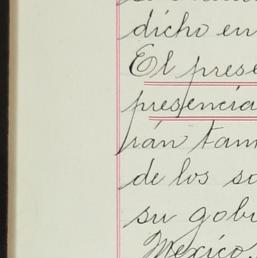 dicho en
El prese
presencia
rán tam
de los so
su gobi
Mexico.